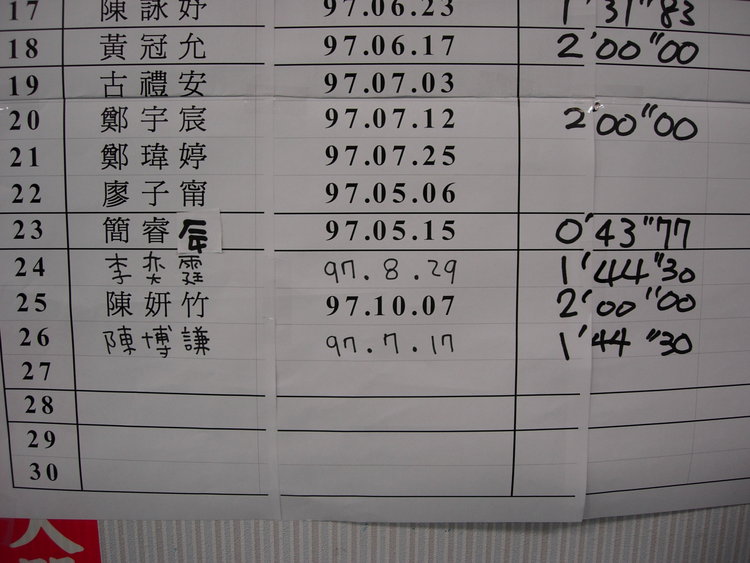 17 陳詠妤 97.06.23 1'31"83
18 黃冠允 97.06.17 2'00"00
19 古禮安 97.07.03
20 鄭宇宸 97.07.12 2'00"00
21 鄭瑋婷 97.07.25
22 廖子甯 97.05.06
23 簡睿辰 97.05.15 0'43"77
24 李奕霆 97.8.29 1'44"30
25 陳妍竹 97.10.07 2'00"00
26 陳博謙 97.7.17 1'44"30
27
28
29
30